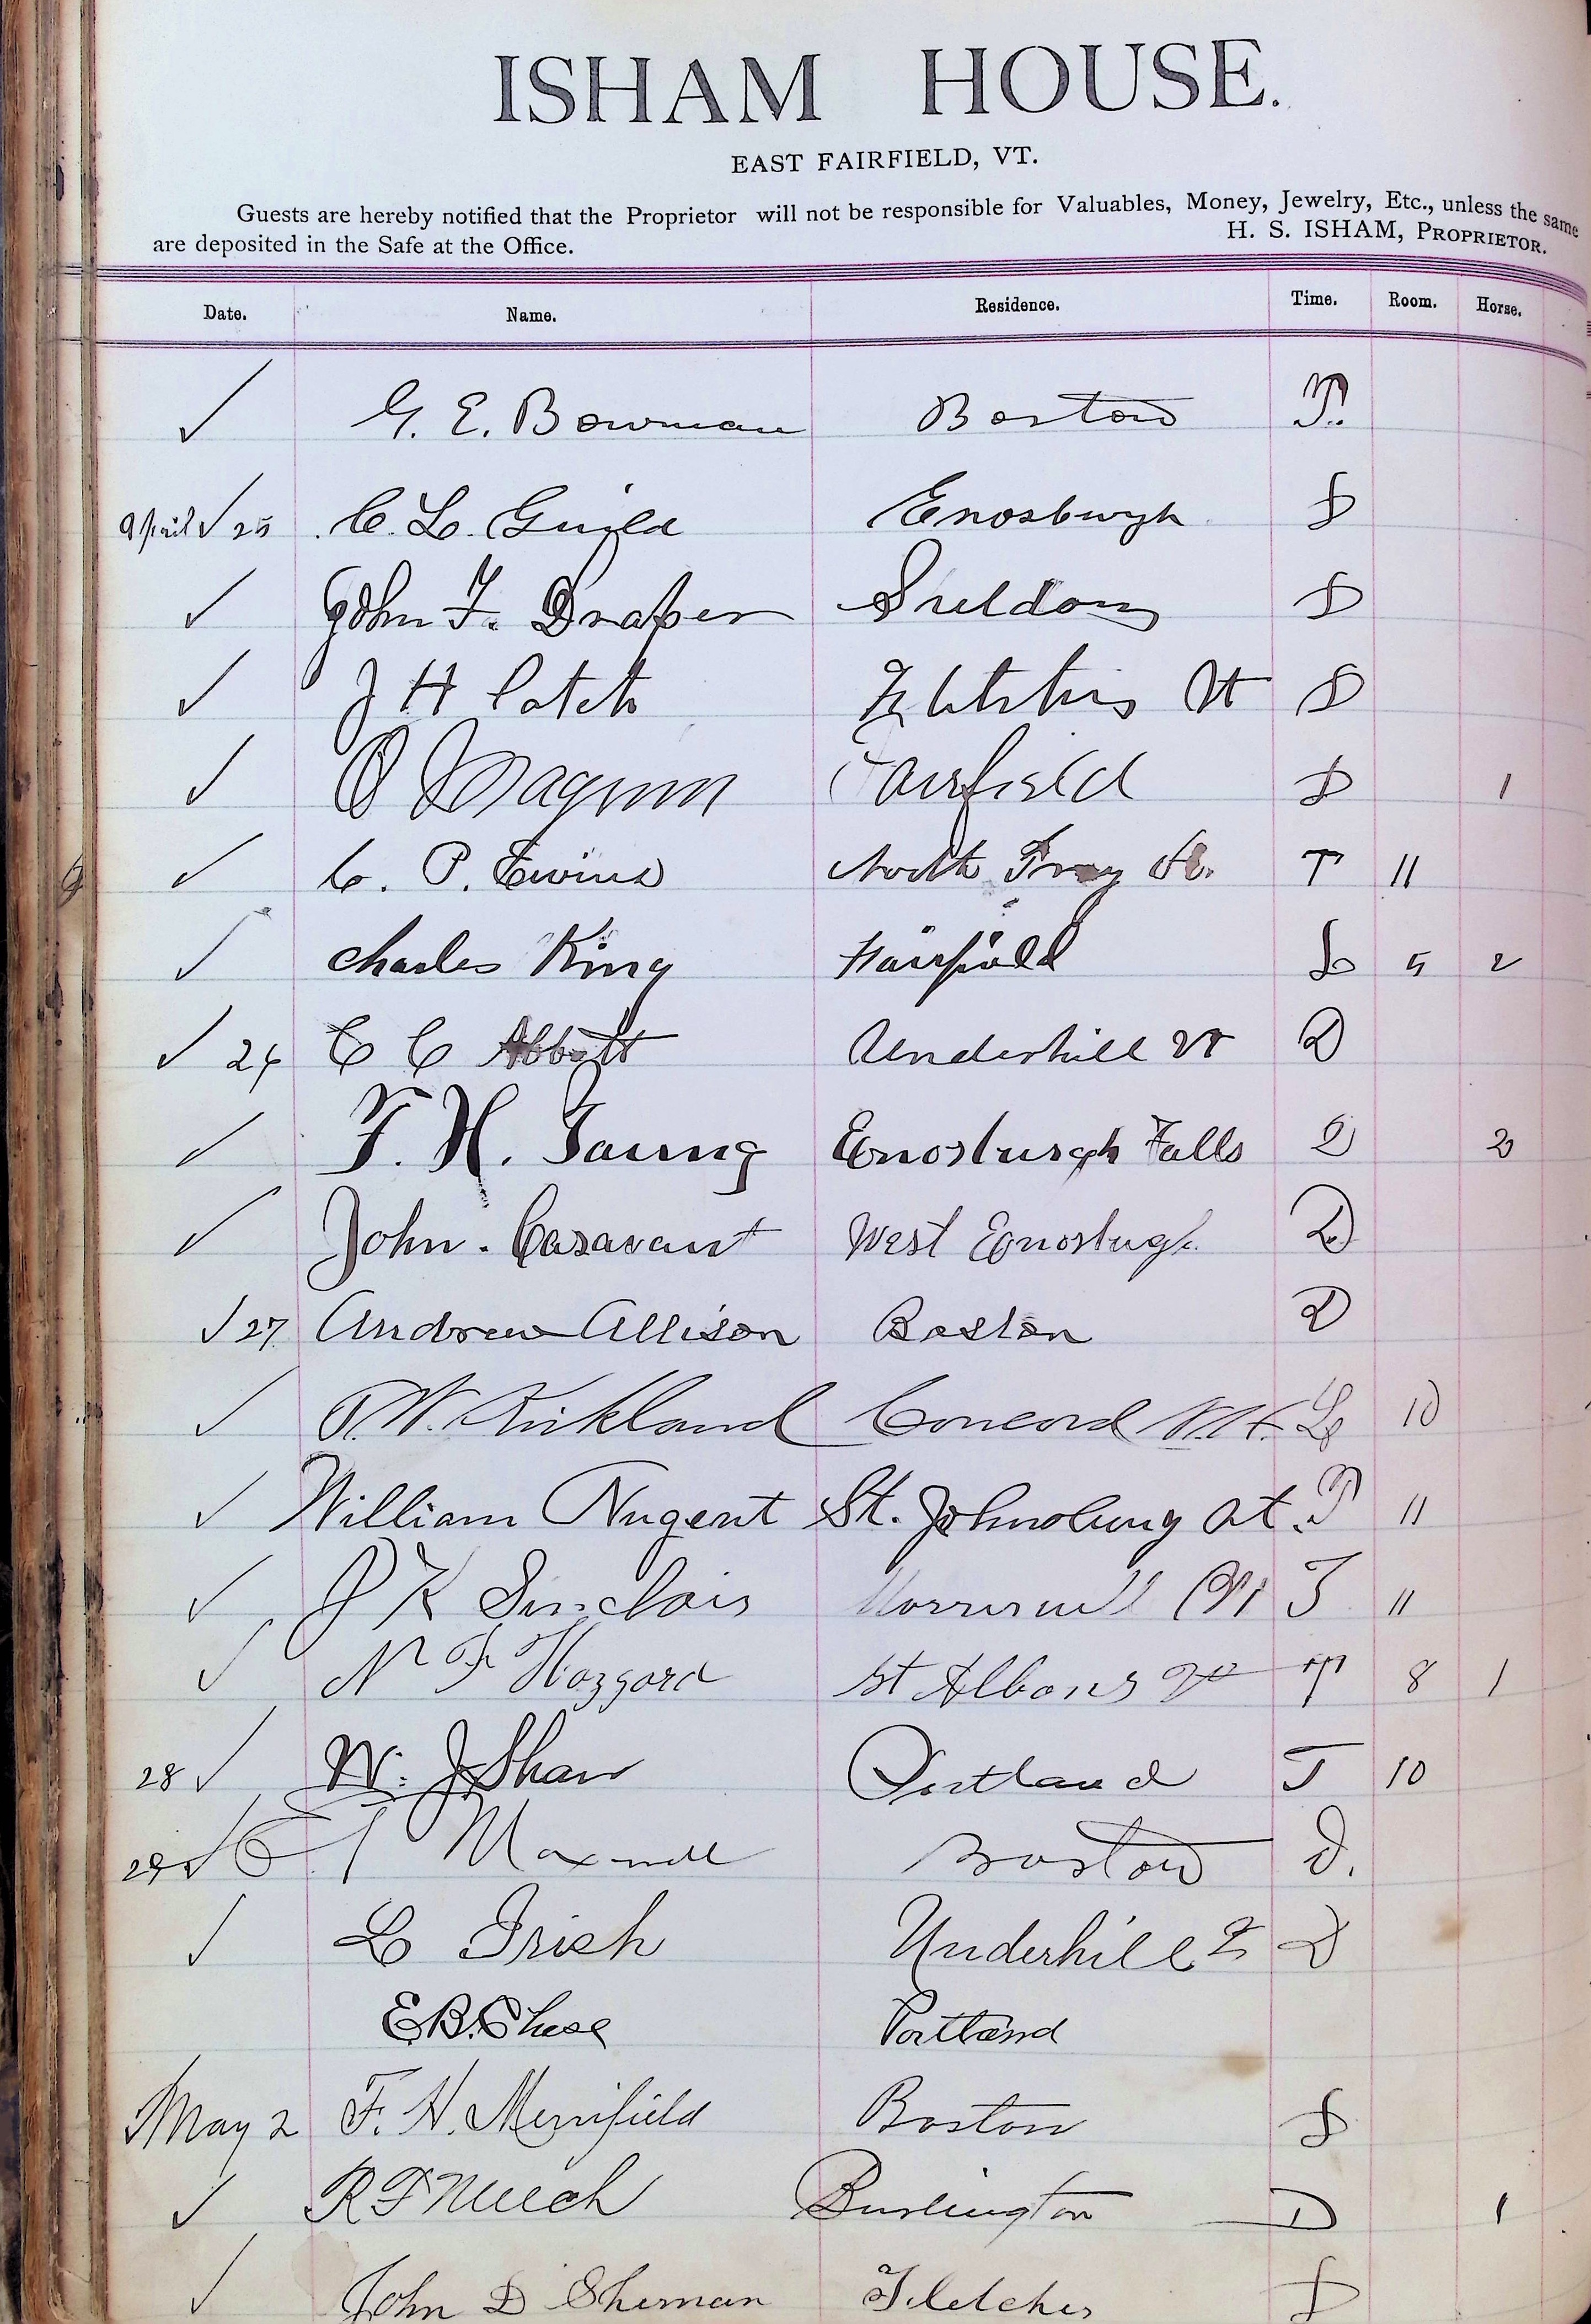 ISHAM HOUSE.
EAST FAIRFIELD, VT.
Guests are hereby notified that the Proprietor will not be responsible for Valuables, Money, Jewelry, Etc., unless the same
are deposited in the Safe at the Office. H. S. ISHAM, PROPRIETOR.
Date. Name. Residence. Time. Room. Horse.
✓ G. E. Bowman Boston T.
April ✓ 25 C. L. Guild Enosburgh D
✓ John F. Draper Sheldon D
✓ J H Vt D
✓ O Fairfield D 1
✓ C. P. North Troy Vt. T 11
✓ Charles King Fairfield L 5 2
✓ C C Abbott Underhill Vt D
✓ F. H. Enosburgh Falls D 2
✓ John. Casavant West Enosburgh D
✓ 27 Andrew Allison Boston D
✓ Kirkland Concord N.H. L 10
✓ William Nugent St. Johnsbury Vt. T 11
✓ K Sinclair T 11
✓ N F Hazzard St Albans Vt T 8 1
28 ✓ W. J. Shaw Portland T 10
29 ✓ Maxwell Boston D.
✓ L Irish Underhill D
E.B. Chase Portland
May 2 F. H. Merrifield Boston D
✓ R F Meech Burlington D 1
✓ John D Sherman Fletcher D